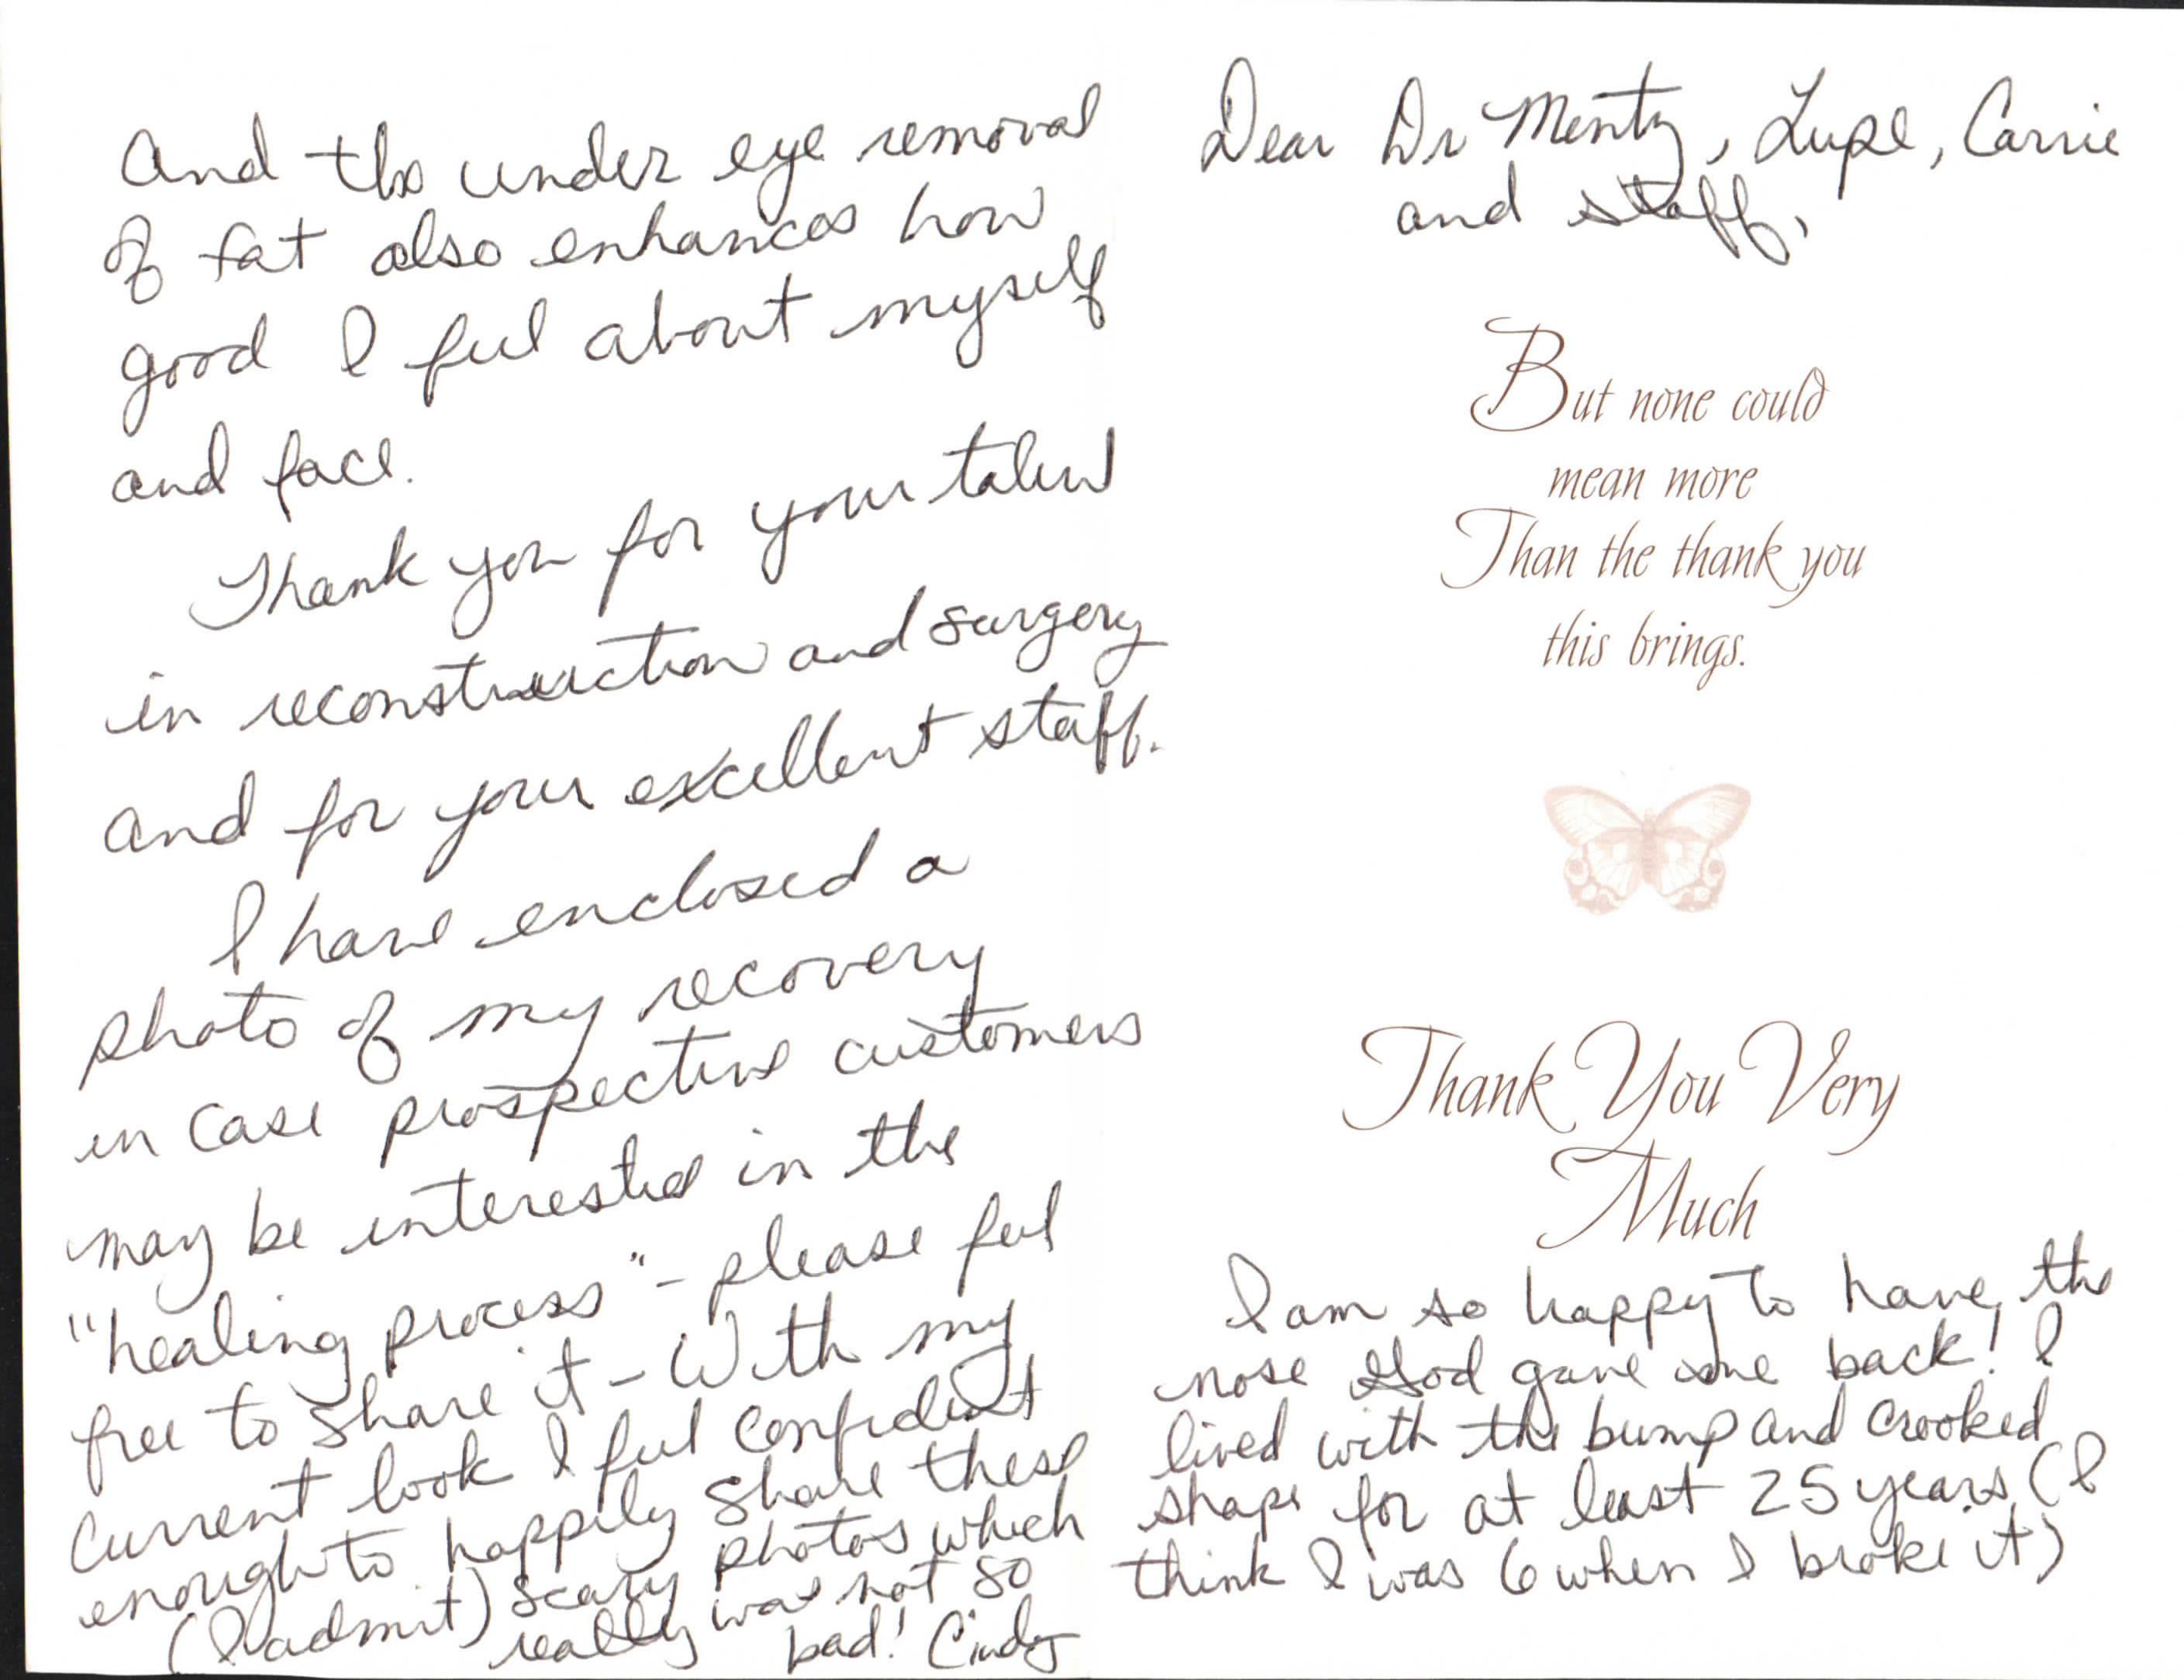 Dear Dr Mentz, Lupe, Carrie
and staff,
But none could
mean more
Than the thank you
this brings.
Thank You Very
Much
I am so happy to have the
nose God gave me back! I
lived with the bump and crooked
shape for at least 25 years (I
think I was 6 when I broke it)
And the under eye removal
of fat also enhances how
good I feel about myself
and face.
Thank you for your talent
in reconstruction and surgery
and for your excellent staff.
I have enclosed a
photo of my recovery
in case prospective customers
may be interested in the
"healing process" - please feel
free to share it - With my
current look I feel confident
enough to happily share these
(I admit) scary photos which
really was not so
bad! Cindy